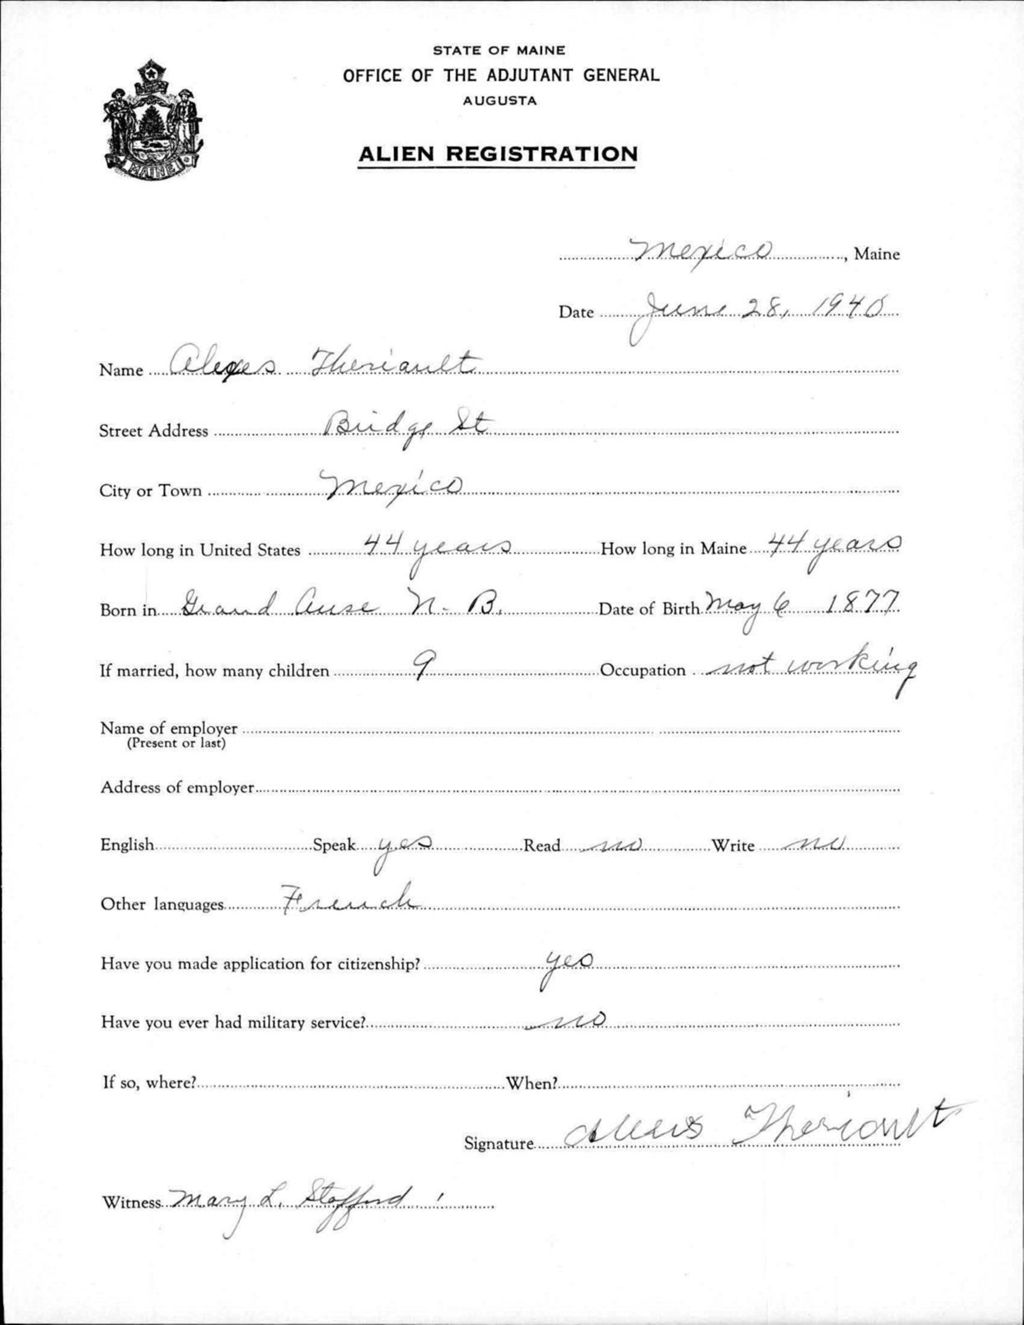 STATE OF MAINE
OFFICE OF THE ADJUTANT GENERAL
AUGUSTA
ALIEN REGISTRATION
MAINE
Mexico, Maine
Date June 28, 1940
Name Alexes Theriault
Street Address Bridge St
City or Town Mexico
How long in United States 44 years How long in Maine 44 years
Born in Grand Anse N. B. Date of Birth May 6 1877
If married, how many children 9 Occupation not working
Name of employer
(Present or last)
Address of employer
English Speak yes Read no Write no
Other languages French
Have you made application for citizenship? yes
Have you ever had military service? no
If so, where? When?
Signature Theriault
Witness Mary L. Stafford